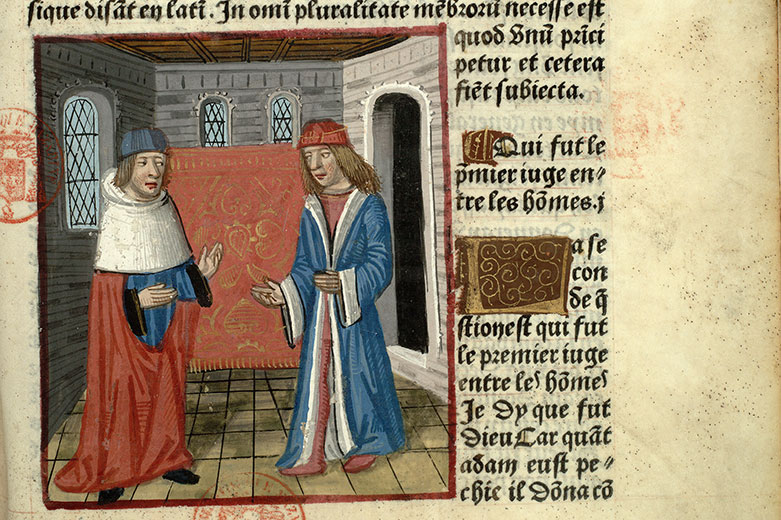 sique disāt en latī. In omī pluralitate mēbrorū necesse est
quod vnū prīci
petur et cetera
fiēt subiecta.
Qui fut le
p̄mier iuge en⸗
tre les hōmes. j
a se
con
de q̄
stion est qui fut
le premier iuge
entre les hōmes
Je dy que fut
dieu Car quāt
adam eust pe⸗
chie il dōna cō